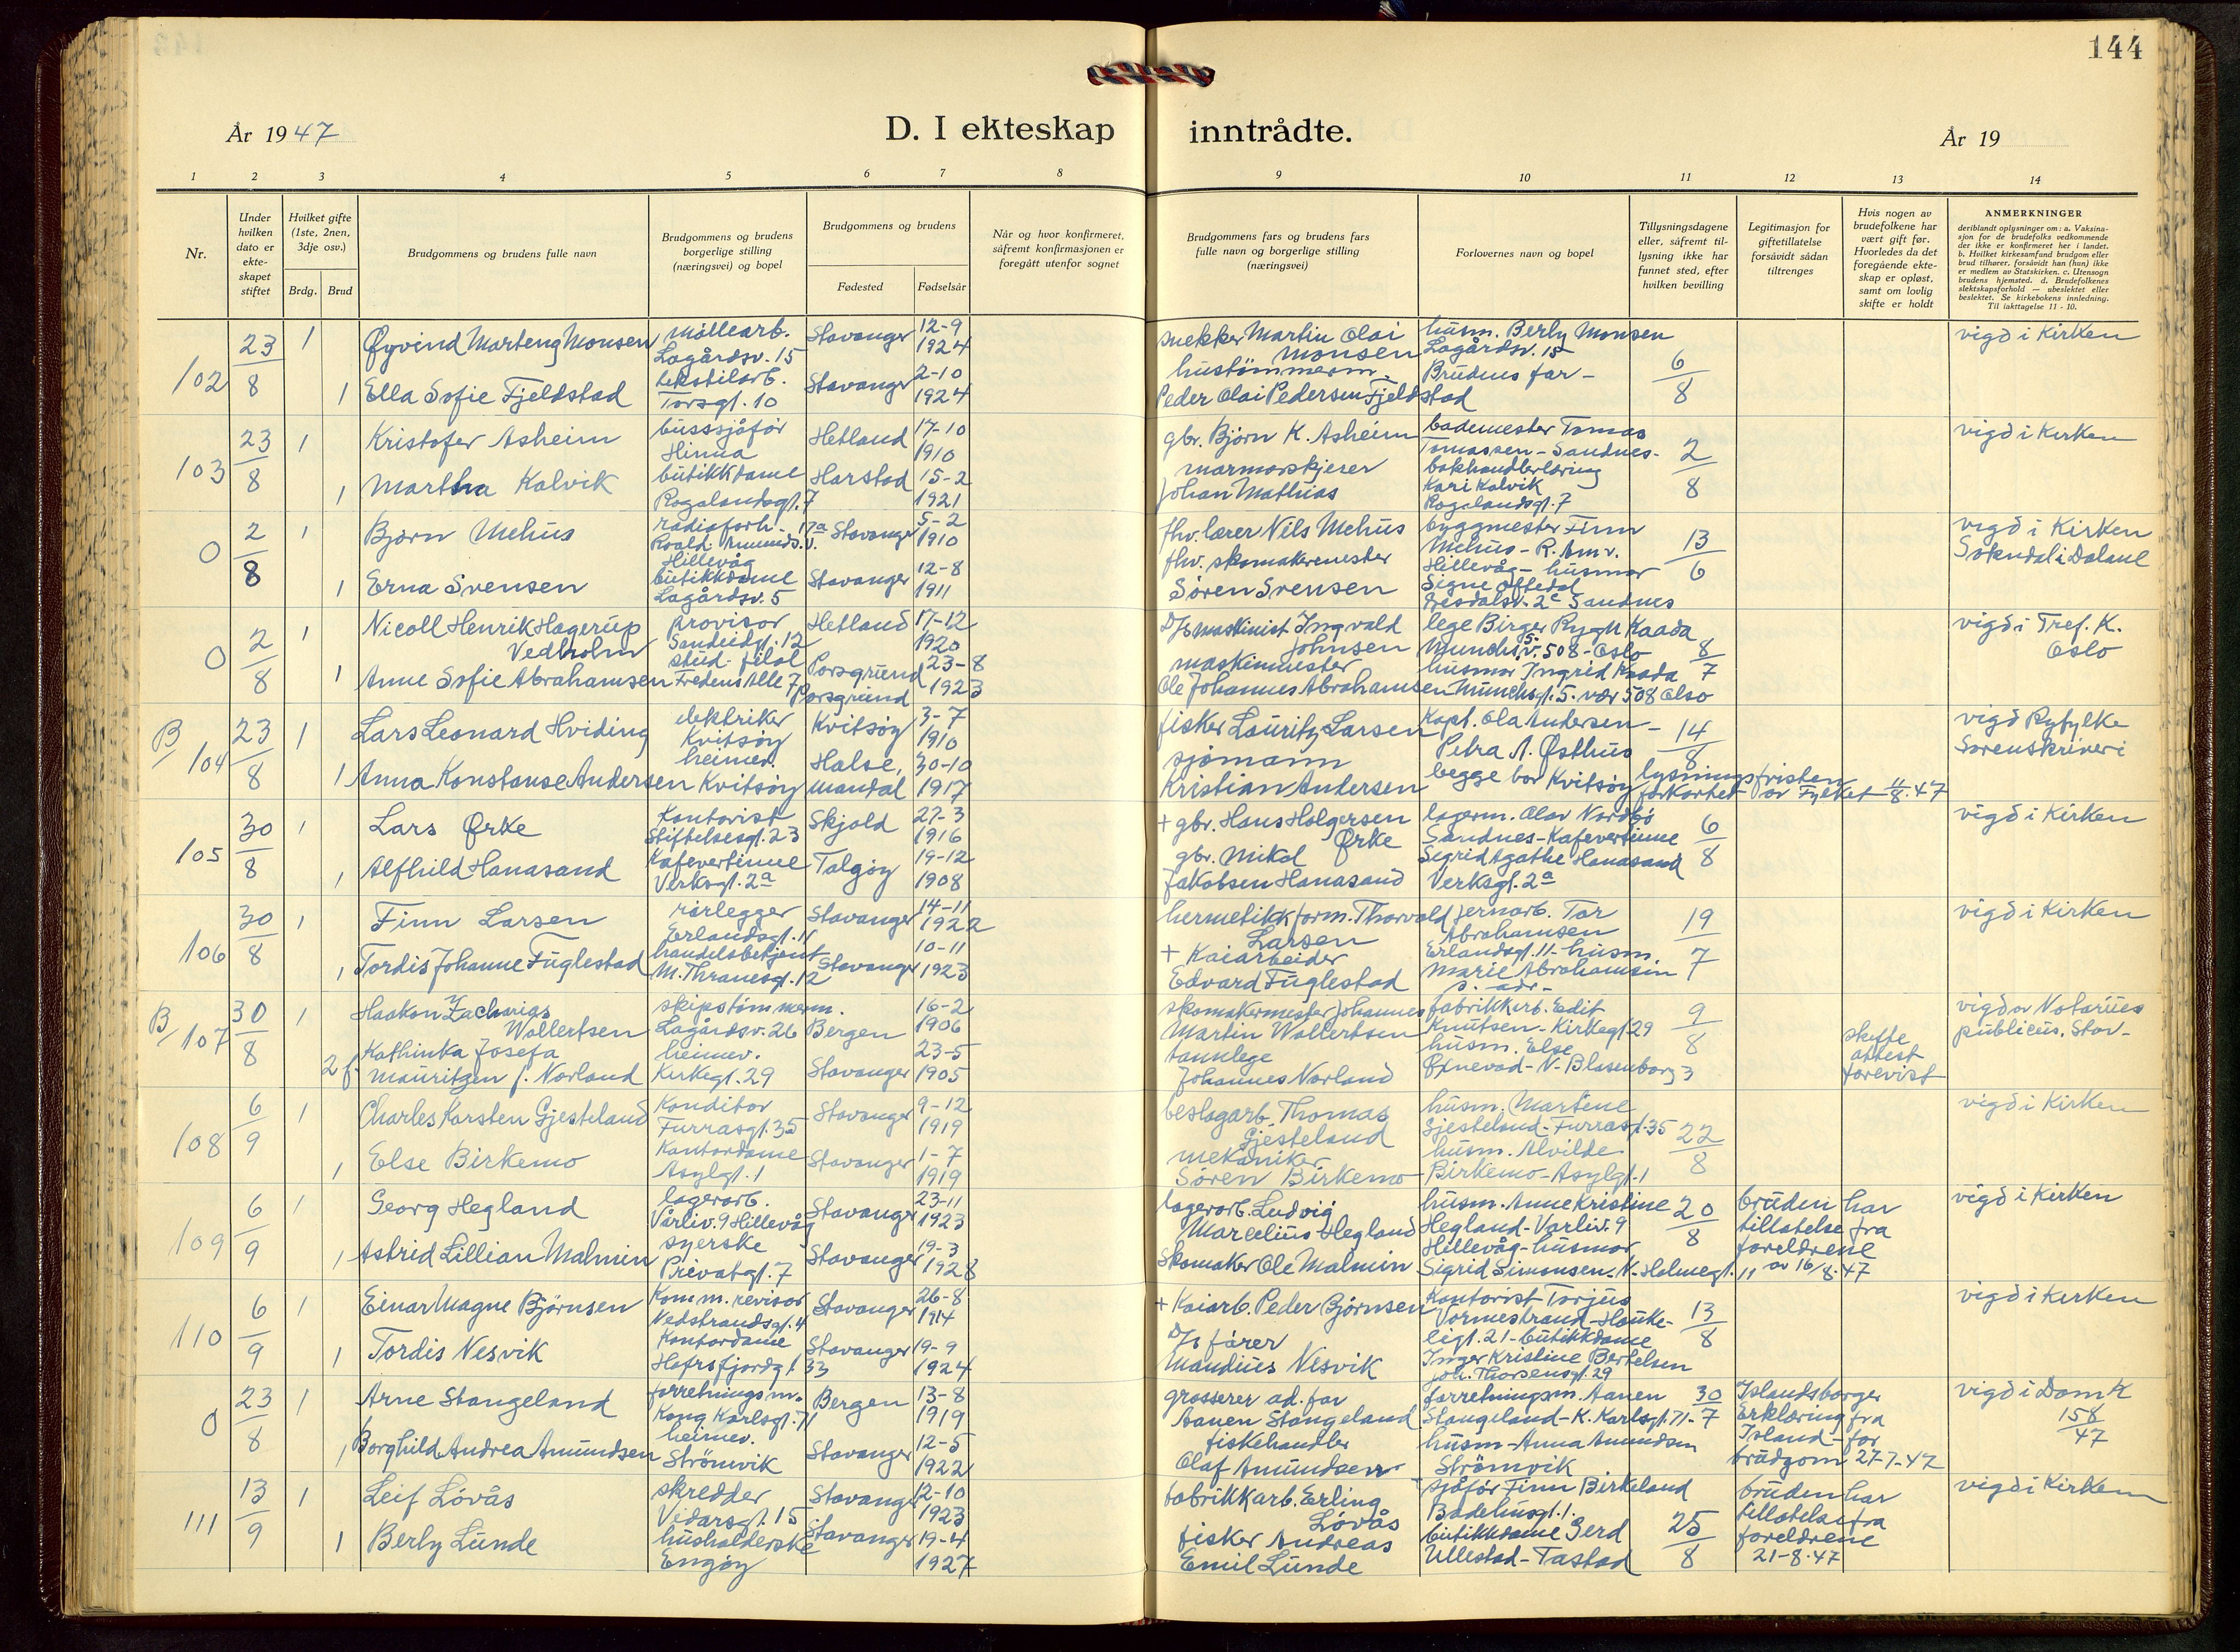 144
År 1947
D. I ekteskap inntrådte.
År 19
1 2 3 4 5 6 7 8 9 10 11 12 13 14
Nr.
Under hvilken dato er ekte-skapet stiftet
Hvilket gifte (1ste, 2nen, 3dje osv.)
Brdg. Brud
Brudgommens og brudens fulle navn
Brudgommens og brudens borgerlige stilling (næringsvei) og bopel
Brudgommens og brudens
Fødested
Fødselsår
Når og hvor konfirmeret, såfremt konfirmasjonen er foregått utenfor sognet
Brudgommens fars og brudens fars fulle navn og borgerlige stilling (næringsvei)
Forlovernes navn og bopel
Tillysningsdagene eller, såfremt til-lysning ikke har funnet sted, efter hvilken bevilling
Legitimasjon for giftetillatelse forsåvidt sådan tiltrenges
Hvis nogen av brudefolkene har vært gift før. Hvorledes da det foregående ekte-skap er opløst, samt om lovlig skifte er holdt
ANMERKNINGER
deriblandt oplysninger om: a. Vaksina-sjon for de brudefolks vedkommende der ikke er konfirmeret her i landet. b. Hvilket kirkesamfund brudgom eller brud tilhører, forsåvidt han (hun) ikke er medlem av Statskirken. c. Utensogn brudens hjemsted. d. Brudefolkenes slektskapsforhold — ubeslektet eller beslektet. Se kirkebokens innledning. Til iakttagelse 11 - 10.
102 23/8 1 Øyvind Morteng Monsen møllearb. Lagårdsv. 15 Stavanger 12-9 1924 snekker Martin Olai Monsen husm. Berly Monsen Lagårdsv. 15 6/8 vigd i Kirken
1 Ella Sofie Fjeldstad tekstilarb. Torsgt. 10 Stavanger 2-10 1924 hustømmerm. Peder Olai Pedersen Fjeldstad Brudens far -
103 23/8 1 Kristofer Asheim bussjåfør Hinna Hetland 17-10 1910 gbr. Bjørn K. Asheim bademester Tomas Tomassen - Sandnes - 2/8 vigd i Kirken
1 Martha Kalvik butikkdame Rogalandsgt. 7 Harstad 15-2 1921 marmorskjerer Johan Mathias bokhandlerlæring Kari Kalvik Rogalandsgt. 7
0 2/8 1 Bjørn Mehus radioforh. 17a Roald Amunds. v. Hillevåg Stavanger 5-2 1910 fhv. lærer Nils Mehus byggmester Finn Mehus - R. Am v. Hillevåg - husmor 13/6 vigd i Kirken Sokndal i Dalane
1 Erna Svensen butikkdame Lagårdsv. 5 Stavanger 12-8 1911 fhv. skomakermester Søren Svensen Signe Oftedal 2c Sandnes
0 2/8 1 Nicoll Henrik Hagerup Vedholm provisor Sandeidgt. 12 Hetland 17-12 1920 D/S maskinist Ingvald Johnsen lege Birger Rygh Kaada Munchsgt. 5. v. 508 - Oslo 8/7 vigd i Tref. K. Oslo
1 Anne Sofie Abrahamsen stud. filol Fredens Alle 7 Porsgrund Porsgrund 23-8 1923 maskinmester Ole Johannes Abrahamsen husmor Ingrid Kaada Munchsgt. 5. vær 508 Olso
B/104 23/8 1 Lars Leonard Hviding elektriker Kvitsøy Kvitsøy 3-7 1910 fisker Lauritz Larsen Kapt. Ola Andersen - 14/8 vigd Ryfylke Sorenskriveri
1 Anna Konstanse Andersen heimev. Kvitsøy Halse, Mandal 30-10 1917 sjømann Kristian Andersen Petra A. Østhus begge bor Kvitsøy lysningsfristen forkortet av Fylket 11/8.47
105 30/8 1 Lars Ørke Kontorist Stiftelsesgt. 23 Skjold 27-3 1916 + gbr. Hans Holgersen Ørke lagerm. Olav Nordbø Sandnes - Kafevertinne 6/8 vigd i Kirken
1 Alfhild Hanasand Kafevertinne Verksgt. 2a Talgøy 19-12 1908 gbr. Mikal Jakobsen Hanasand Sigrid Agathe Hanasand Verksgt. 2a
106 30/8 1 Finn Larsen rørlegger Erlandsgt. 11 Stavanger 14-11 1922 hermetikkform. Thorvald Larsen jernarb. Tor Abrahamsen Erlandsgt. 11 - husm. 19/7 vigd i Kirken
1 Tordis Johanne Fuglestad handelsbetjent M. Thranesgt. 12 Stavanger 10-11 1923 + Kaiarbeider Edvard Fuglestad Marie Abrahamsen s. adr -
B/107 30/8 1 Haakon Zacharias Wollertsen skipstømmerm. Lagårdsv. 26 Bergen 16-2 1906 skomakermester Johannes Martin Wollertsen fabrikkarb. Edit Knutsen - Kirkegt 29 9/8 vigd av Notarius publicus, Stav -
2 f. Kathinka Josefa Mauritzen f. Norland heimev. Kirkegt. 29 Stavanger 23-5 1905 tannlege Johannes Norland husm. Else Øxnevad - N. Blasenborg 3 skifte attest forevist
108 6/9 1 Charles Karsten Gjesteland Konditor Furrasgt. 35 Stavanger 9-12 1919 beslagarb. Thomas Gjesteland husm. Martine Gjesteland - Furrasgt. 35 22/8 vigd i Kirken
1 Else Birkemo Kontordame Asylgt. 1 Stavanger 1-7 1919 mekaniker Søren Birkemo husm. Alvilde Birkemo - Asylgt. 1
109 6/9 1 Georg Hegland lagerarb. Vårliv. 9 Hillevåg Stavanger 23-11 1923 lagerarb. Ludvig Marcelius Hegland husm. Anne Kristine Hegland - Varliv. 9 Hillevåg - husmor 20/8 bruden har tillatelse fra foreldrene av 16/8.47 vigd i Kirken
1 Astrid Lillian Malmin syerske Privatgt. 7 Stavanger 19-3 1928 Skomaker Ole Malmin Sigrid Simonsen. N. Holmegt. 11
110 6/9 1 Einar Magne Bjørnsen Komm. revisor Nedstrandsgt. 4 Stavanger 26-8 1914 + Kaiarb. Peder Bjørnsen Kontorist Torjus Vormestrand - Haukeligt. 21 - butikkdame 13/8 vigd i Kirken
1 Tordis Nesvik Kontordame Hafrsfjordgt 33 Stavanger 19-9 1924 D/S fører Mandius Nesvik Inger Kristine Bertelsen Joh. Thorsensgt. 29
0 23/8 1 Arne Stangeland forretningsm. Kong Karlsgt. 71 Bergen 13-8 1919 grosserer ad. far Aanen Stangeland forretningsm. Aanen Stangeland - K. Karlsgt. 71 - 30/7 Islandsborger Erklæring fra Island - for brudgom 27-7-47 vigd i Dom K 158/47
1 Borghild Andrea Amundsen heimev. Strømvik Stavanger 12-5 1922 fiskehandler Olaf Amundsen husm - Anna Amundsen Strømvik
111 13/9 1 Leif Lövås skredder Vidarsgt. 15 Stavanger 12-10 1923 fabrikkarb. Erling Lövås sjåfør Finn Birkeland Badehusgt. 1. 25/8 bruden har tillatelse fra foreldrene 21-8.47 vigd i Kirken
1 Berly Lunde husholderske Engøy Stavanger 19-4 1927 fisker Andreas Emil Lunde butikkdame Gerd Ullestad - Tastad